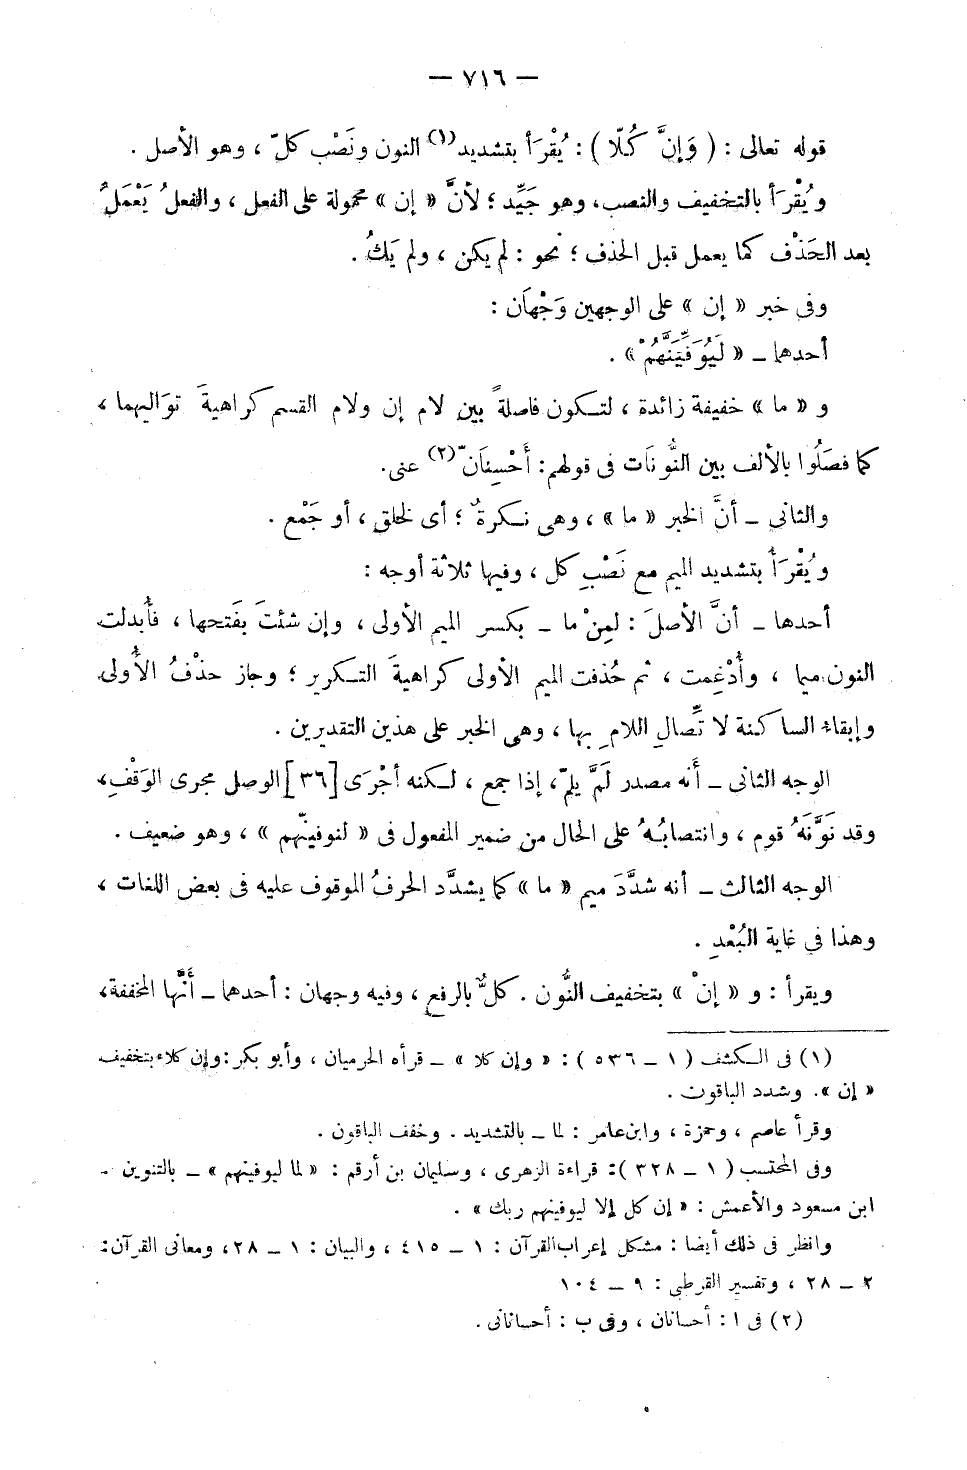 — ٧١٦ —
قوله تعالى : ( وَإِنَّ كُلّا ) : يُقْرَأ بتشديد(١) النون ونَصْب كلّ ، وهو الأصل .
ويُقْرَأ بالتخفيف والنصب، وهو جَيِّد ؛ لأنَّ « إن » محمولة على الفعل ، والفعلُ يَعْمَلُ
بعد الحَذْف كما يعمل قبل الحذف ؛ نحو : لم يكن ، ولم يَكُ .
وفى خبر « إن » على الوجهين وَجْهَان :
أحدهما ــ « لَيُوَفِّيَنَّهُمْ » .
و « ما » خفيفة زائدة ، لتكون فاصلةً بين لام إن ولام القسم كراهيةَ تَوَاليهما ،
كما فصَلُوا بالألف بين النُّونَات فى قولهم : أَحْسِنَانّ(٢) عنى.
والثانى ــ أنَّ الخبر « ما » ، وهى نكرةٌ ؛ أى لخلق ، أو جَمْع .
ويُقْرَأُ بتشديد الميم مع نَصْبِ كل ، وفيها ثلاثة أوجه :
أحدها ــ أنَّ الأصلَ : لمِنْ ما ــ بكسر الميم الأولى ، وإن شئتَ بفَتحها ، فأُبدلت
النون ميما ، وأُدْغِمت ، ثم حُذفت الميم الأولى كراهيةَ التكرير ؛ وجاز حذْفُ الأُولى
وإبقاء الساكنة لاتِّصالِ اللام بها ، وهى الخبر على هذين التقديرين .
الوجه الثانى ــ أَنه مصدر لَمَّ يلمّ ، إذا جمع ، لكنه أجْرَى [٣٦] الوصل مجرى الوَقْفِ،
وقد نَوَّنَهُ قوم ، وانتصابُهُ على الحال من ضمير المفعول فى « لنوفينّهم » ، وهو ضعيف .
الوجه الثالث ــ أنه شدَّدَ ميم « ما » كما يشدَّد الحرفُ الموقوف عليه فى بعض اللغات ،
وهذا فى غاية البُعْدِ .
ويقرأ : و « إنْ » بتخفيف النُّون . كلٌّ بالرفع ، وفيه وجهان : أحدهما ــ أَنَّها المخففة،
(١) فى الكشف ( ١ ــ ٥٣٦ ) : « وإن كلا » ــ قرأه الحرميان ، وأبو بكر : وإن كلاء بتخفيف
« إن ». وشدد الباقون .
وقرأ عاصم ، وحمزة ، وابن عامر : لما ــ بالتشديد . وخفف الباقون .
وفى المحتسب ( ١ ــ ٣٢٨ ) : قراءة الزهرى ، وسليمان بن أرقم : « لما ليوفينهم » ــ بالتنوين ــ
ابن مسعود والأعمش : « إن كل إلا ليوفينهم ربك » .
وانظر فى ذلك أيضا : مشكل إعراب القرآن : ١ ــ ٤١٥ ، والبيان : ١ ــ ٢٨، ومعانى القرآن:
٢ ــ ٢٨ ، وتفسير القرطبى : ٩ ــ ١٠٤
(٢) فى ا : أحسانان ، وفى ب : أحسانانى .